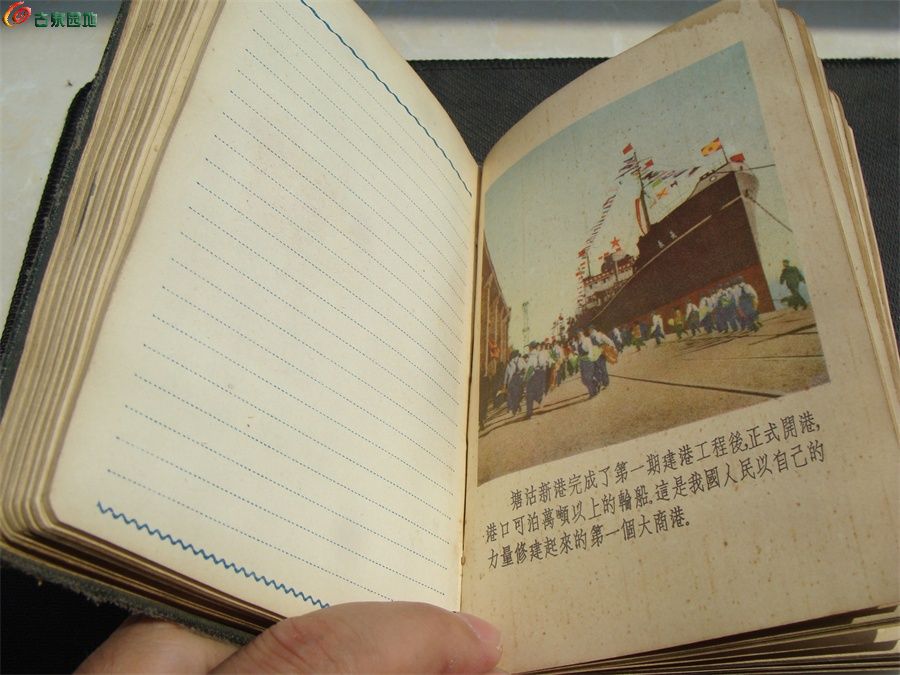 古泉园地
塘沽新港完成了第一期建港工程後,正式開港,
港口可泊萬噸以上的輪船,這是我國人民以自己的
力量修建起來的第一個大商港。